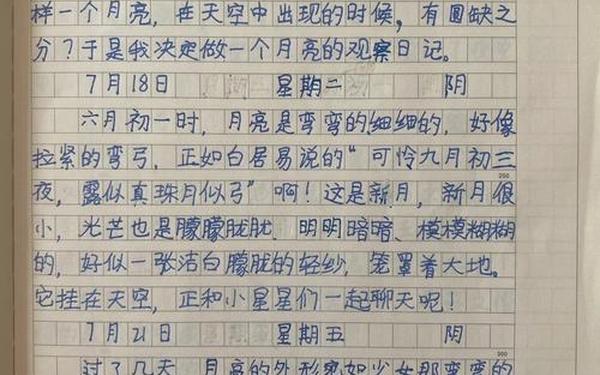 样一个月亮，在天空中出现的时候，有圆缺之
分？于是我决定做一个月亮的观察日记。
7月18日 星期二 阴
六月初一时，月亮是弯弯的细细的，好像
拉紧的弯弓，正如白居易说的“可怜九月初三
夜，露似真珠月似弓”啊！这是新月，新月很
小，光芒也是朦朦胧胧、明明暗暗、模模糊糊
的，好似一张洁白朦胧的轻纱，笼罩着大地。
它挂在天空，正和小星星们一起聊天呢！
7月21日 星期五 阴
过了几天，月亮的外形变如少女那弯弯的